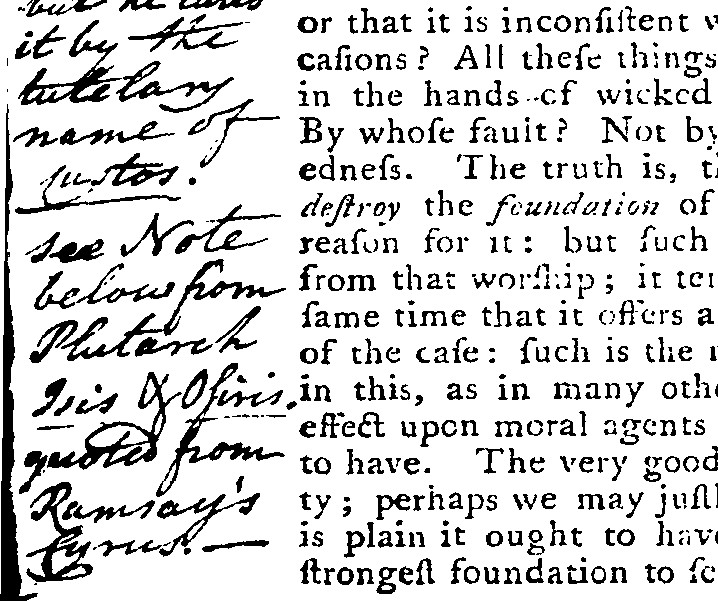 but he cures
it by the
tutelary
name of
custos.
see Note
below from
Plutarch
Isis & Osiris.
quoted from
Ramsay's
Cyrus. —
or that it is inconſiſtent
caſions? All theſe things
in the hands of wicked
By whoſe fault? Not by
edneſs. The truth is,
deſtroy the foundation of
reaſon for it: but ſuch
from that worſhip; it
ſame time that it offers a
of the caſe: ſuch is the
in this, as in many
effect upon moral agents
to have. The very good
ty; perhaps we may
is plain it ought to have
ſtrongeſt foundation to